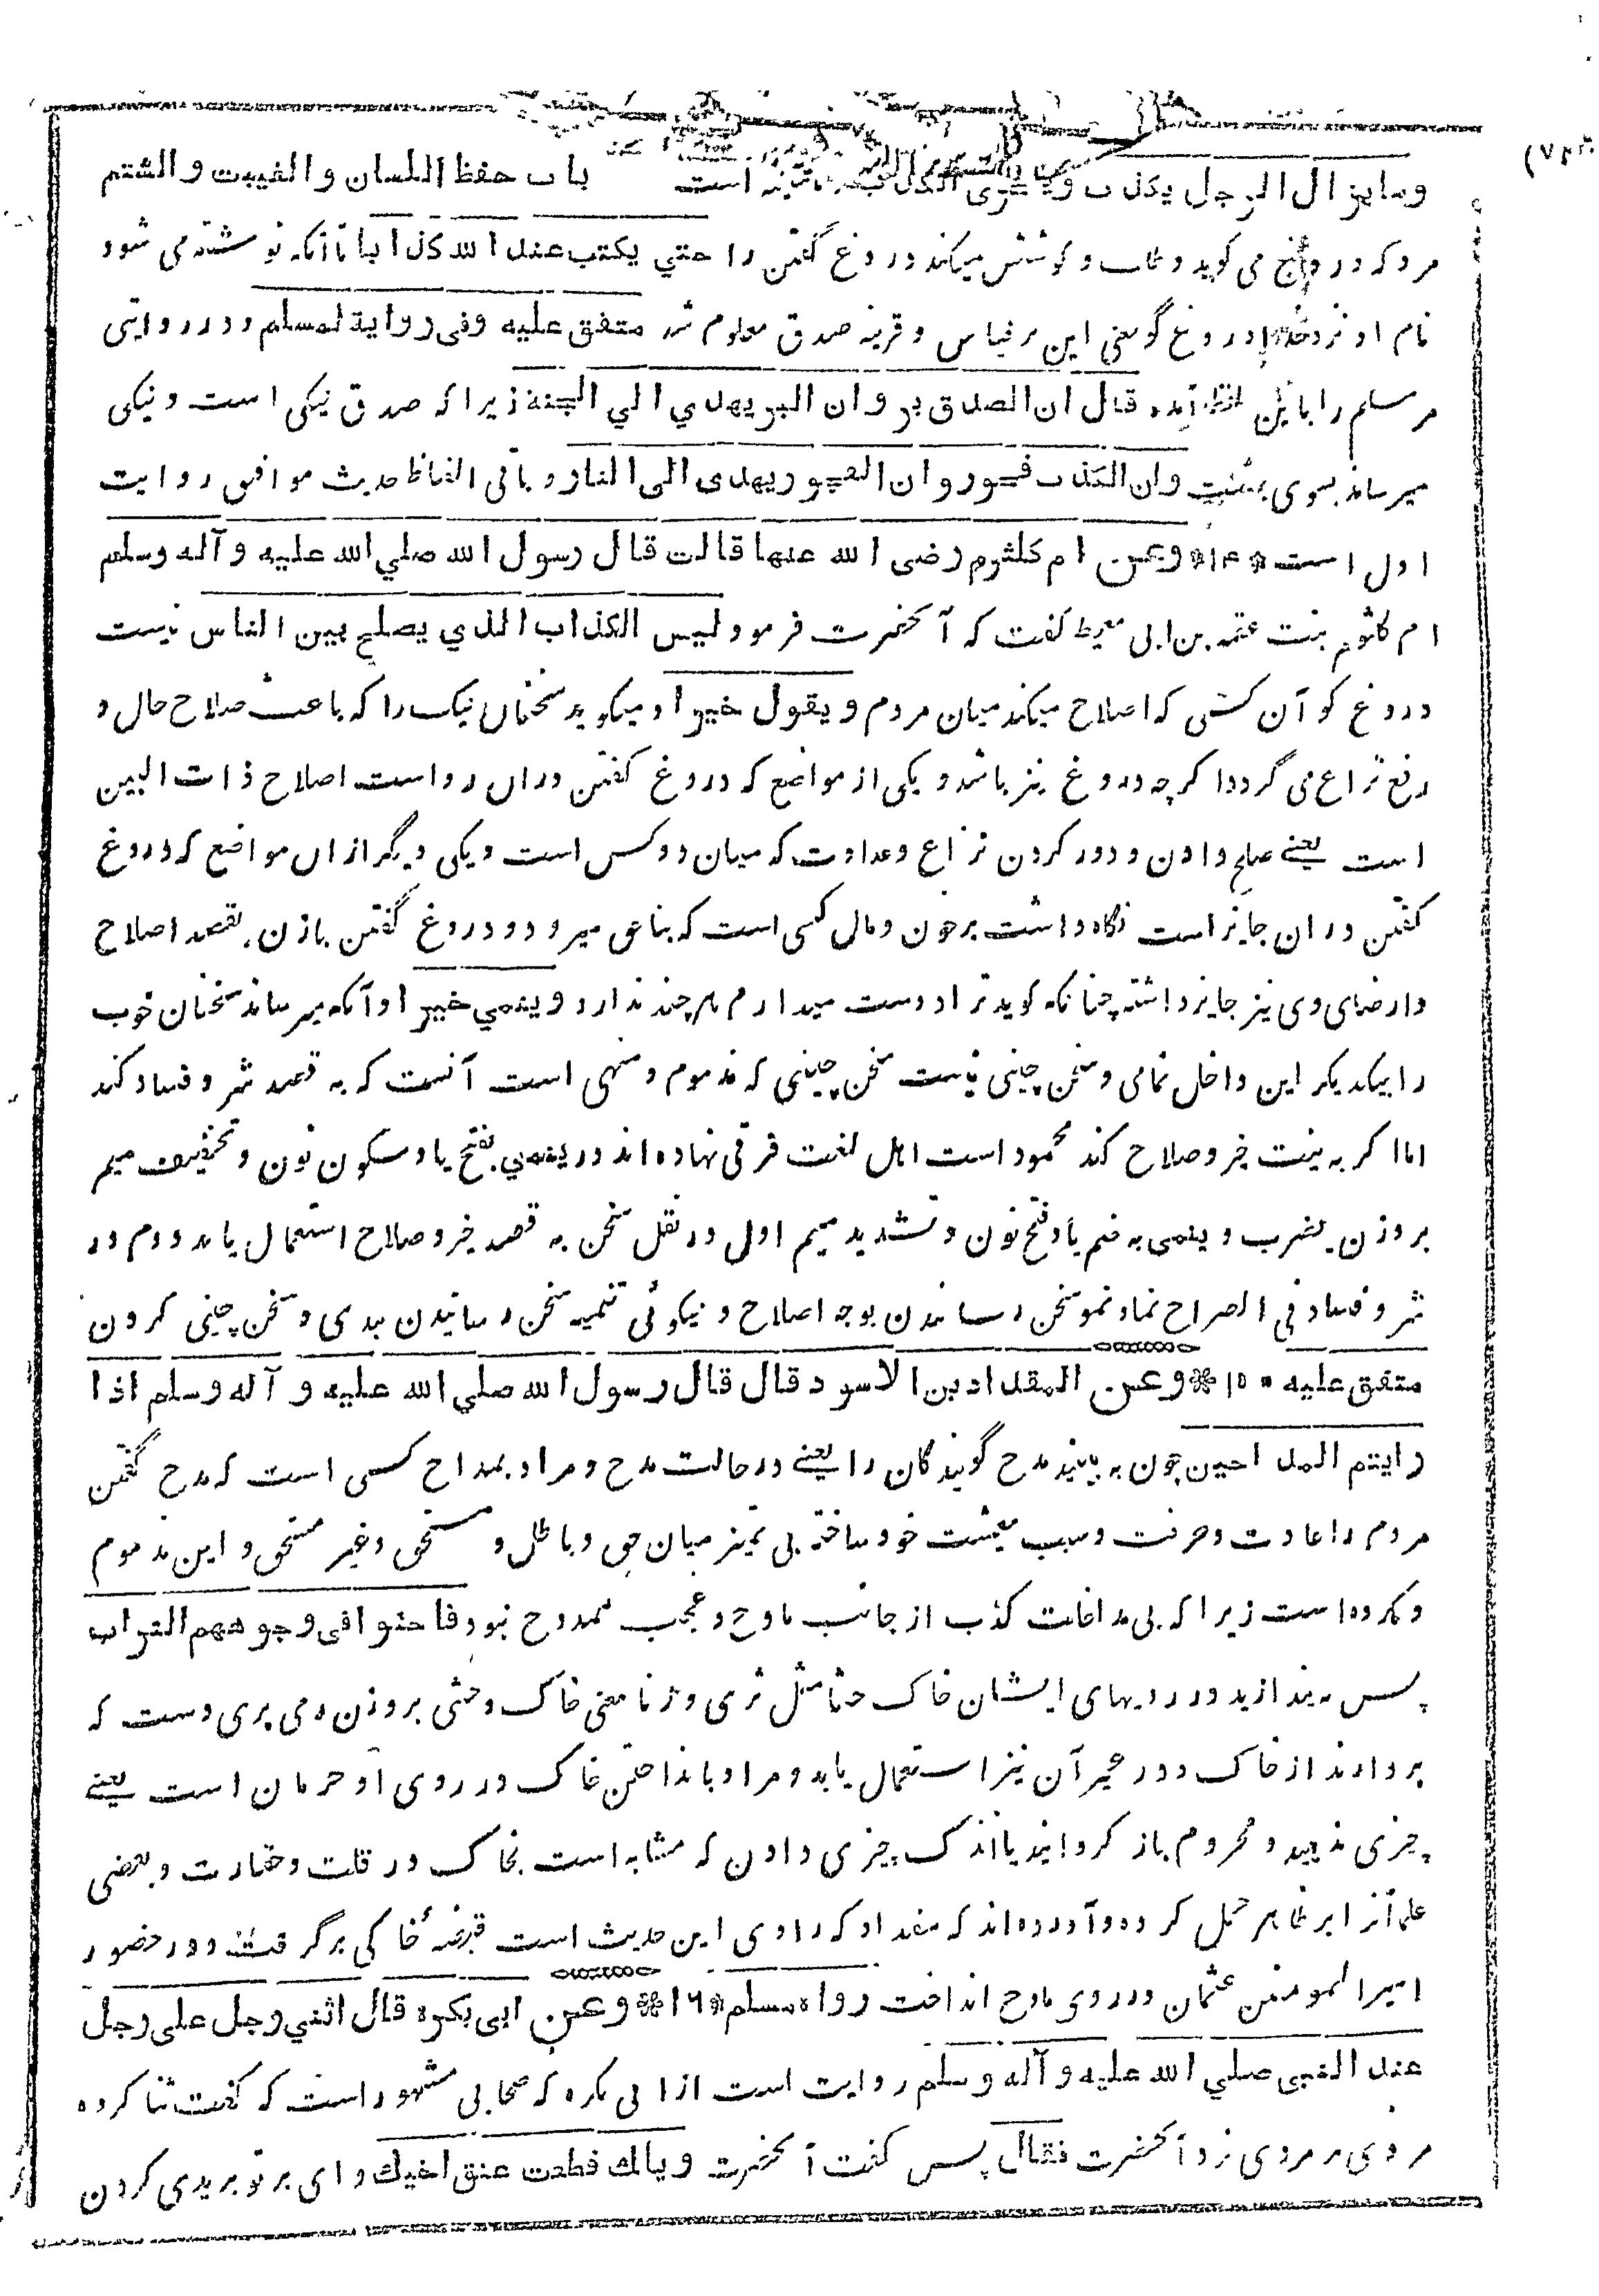 باب حفظ اللسان والغيبت والشتم
وما يزال الرجل يكذب ويتحرى الكذب است
مرد که دروغ می گوید و طلب و کوشش میکند دروغ گفتن را حتي يكتب عند الله كذابا تا آنکه نوشته می شود
نام او نزد خدا دروغ گو معنی این بر قیاس و قرینه صدق معلوم شد متفق عليه وفى رواية لمسلم و در روایتی
مر مسلم را باین لفظ آمده قال ان الصدق بر وان البر يهدي الي الجنة زیرا که صدق نیکی است و نیکی
میرساند بسوی بهشت وان الكذب فجور وان الفجور يهدى الى النار و باقی الفاظ حدیث موافق روایت
اول است * ۱۴ * وعن ام كلثوم رضى الله عنها قالت قال رسول الله صلي الله عليه و آله وسلم
ام کلثوم بنت عقبه بن ابی معیط گفت که آنحضرت فرمود ليس الكذاب الذي يصلح بين الناس نیست
دروغ گو آن کسی که اصلاح میکند میان مردم و يقول خيرا و میگوید سخنان نیک را که باعث صلاح حال و
رفع نزاع می گردد اگرچه دروغ نیز باشد و یکی از مواضع که دروغ گفتن دران رواست اصلاح ذات البین
است یعنے صلح دادن و دور کردن نزاع و عداوت که میان دو کس است و یکی دیگر ازان مواضع که دروغ
گفتن دران جایز است نگاه داشت بر خون و مال کسی است که بناحق میرود و دروغ گفتن بازن بقصد اصلاح
و ارضای وی نیز جایز داشته چنانکه گوید ترا دوست میدارم هر چند ندارد و ينمي خيرا و آنکه میرساند سخنان خوب
را بیکدیگر این داخل نمامی و سخن چینی نیست سخن چینی که مذموم و منهی است آنست که به قصد شر و فساد کند
اما اگر به نیت خیر و صلاح کند محمود است اهل لغت فرقی نهاده اند در ينمي بفتح یا و سکون نون و تخفیف میم
بروزن یضرب و ينمى به ضم یا و فتح نون و تشدید میم اولی در نقل سخن به قصد خیر و صلاح استعمال یابد و دوم در
شر و فساد فی الصراح نماء نمو سخن رساندن بوجه اصلاح و نیکوئی تنمیه سخن رسانیدن ببدی و سخن چینی کردن
متفق عليه * ۱۵ * وعن المقداد بن الاسود قال قال رسول الله صلي الله عليه و آله وسلم اذا
رايتم المداحين چون به بینید مدح گویندگان را یعنے در حالت مدح و مراد بمداح کسی است که مدح گفتن
مردم را عادت و حرفت و سبب معیشت خود ساخته بی تمیز میان حق و باطل و مستحق و غیر مستحق و این مذموم
و مکروه است زیرا که بی مداخلت کذب از جانب مادح و عجب ممدوح نبود فاحثوا فى وجوههم التراب
پس بیندازید در رویهای ایشان خاک حثا مثل ثری وزنا معنی خاک و حثی بروزن رمی پری دست که
بردارند از خاک و در غیر آن نیز استعمال یابد و مراد بانداختن خاک در روی او حرمان است یعنے
چیزی ندهید و محروم باز گردانید یا اندک چیزی دادن که مشابه است بخاک در قلت و حقارت و بعضی
علما آنرا بر ظاهر حمل کرده و آورده اند که مقداد که راوی این حدیث است قبضهٔ خاکی برگرفت و در حضور
امیرالمومنین عثمان در روی مادح انداخت رواه مسلم * ۱۶ * وعن ابى بكره قال اثني رجل على رجل
عند النبى صلي الله عليه و آله وسلم روایت است از ابی بکره که صحابی مشهور است که گفت ثنا کرده
مردی بر مردی نزد آنحضرت فقال پس گفت آنحضرت ويلك قطعت عنق اخيك وای بر تو بریدی گردن